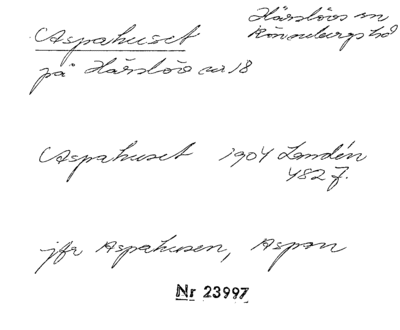 Aspahuset
Härslövs sn
Rönnebergs hd
på Härslöv nr 18
Aspahuset 1904 Landén
482 F.
jfr Aspahusen, Aspan
Nr 23997